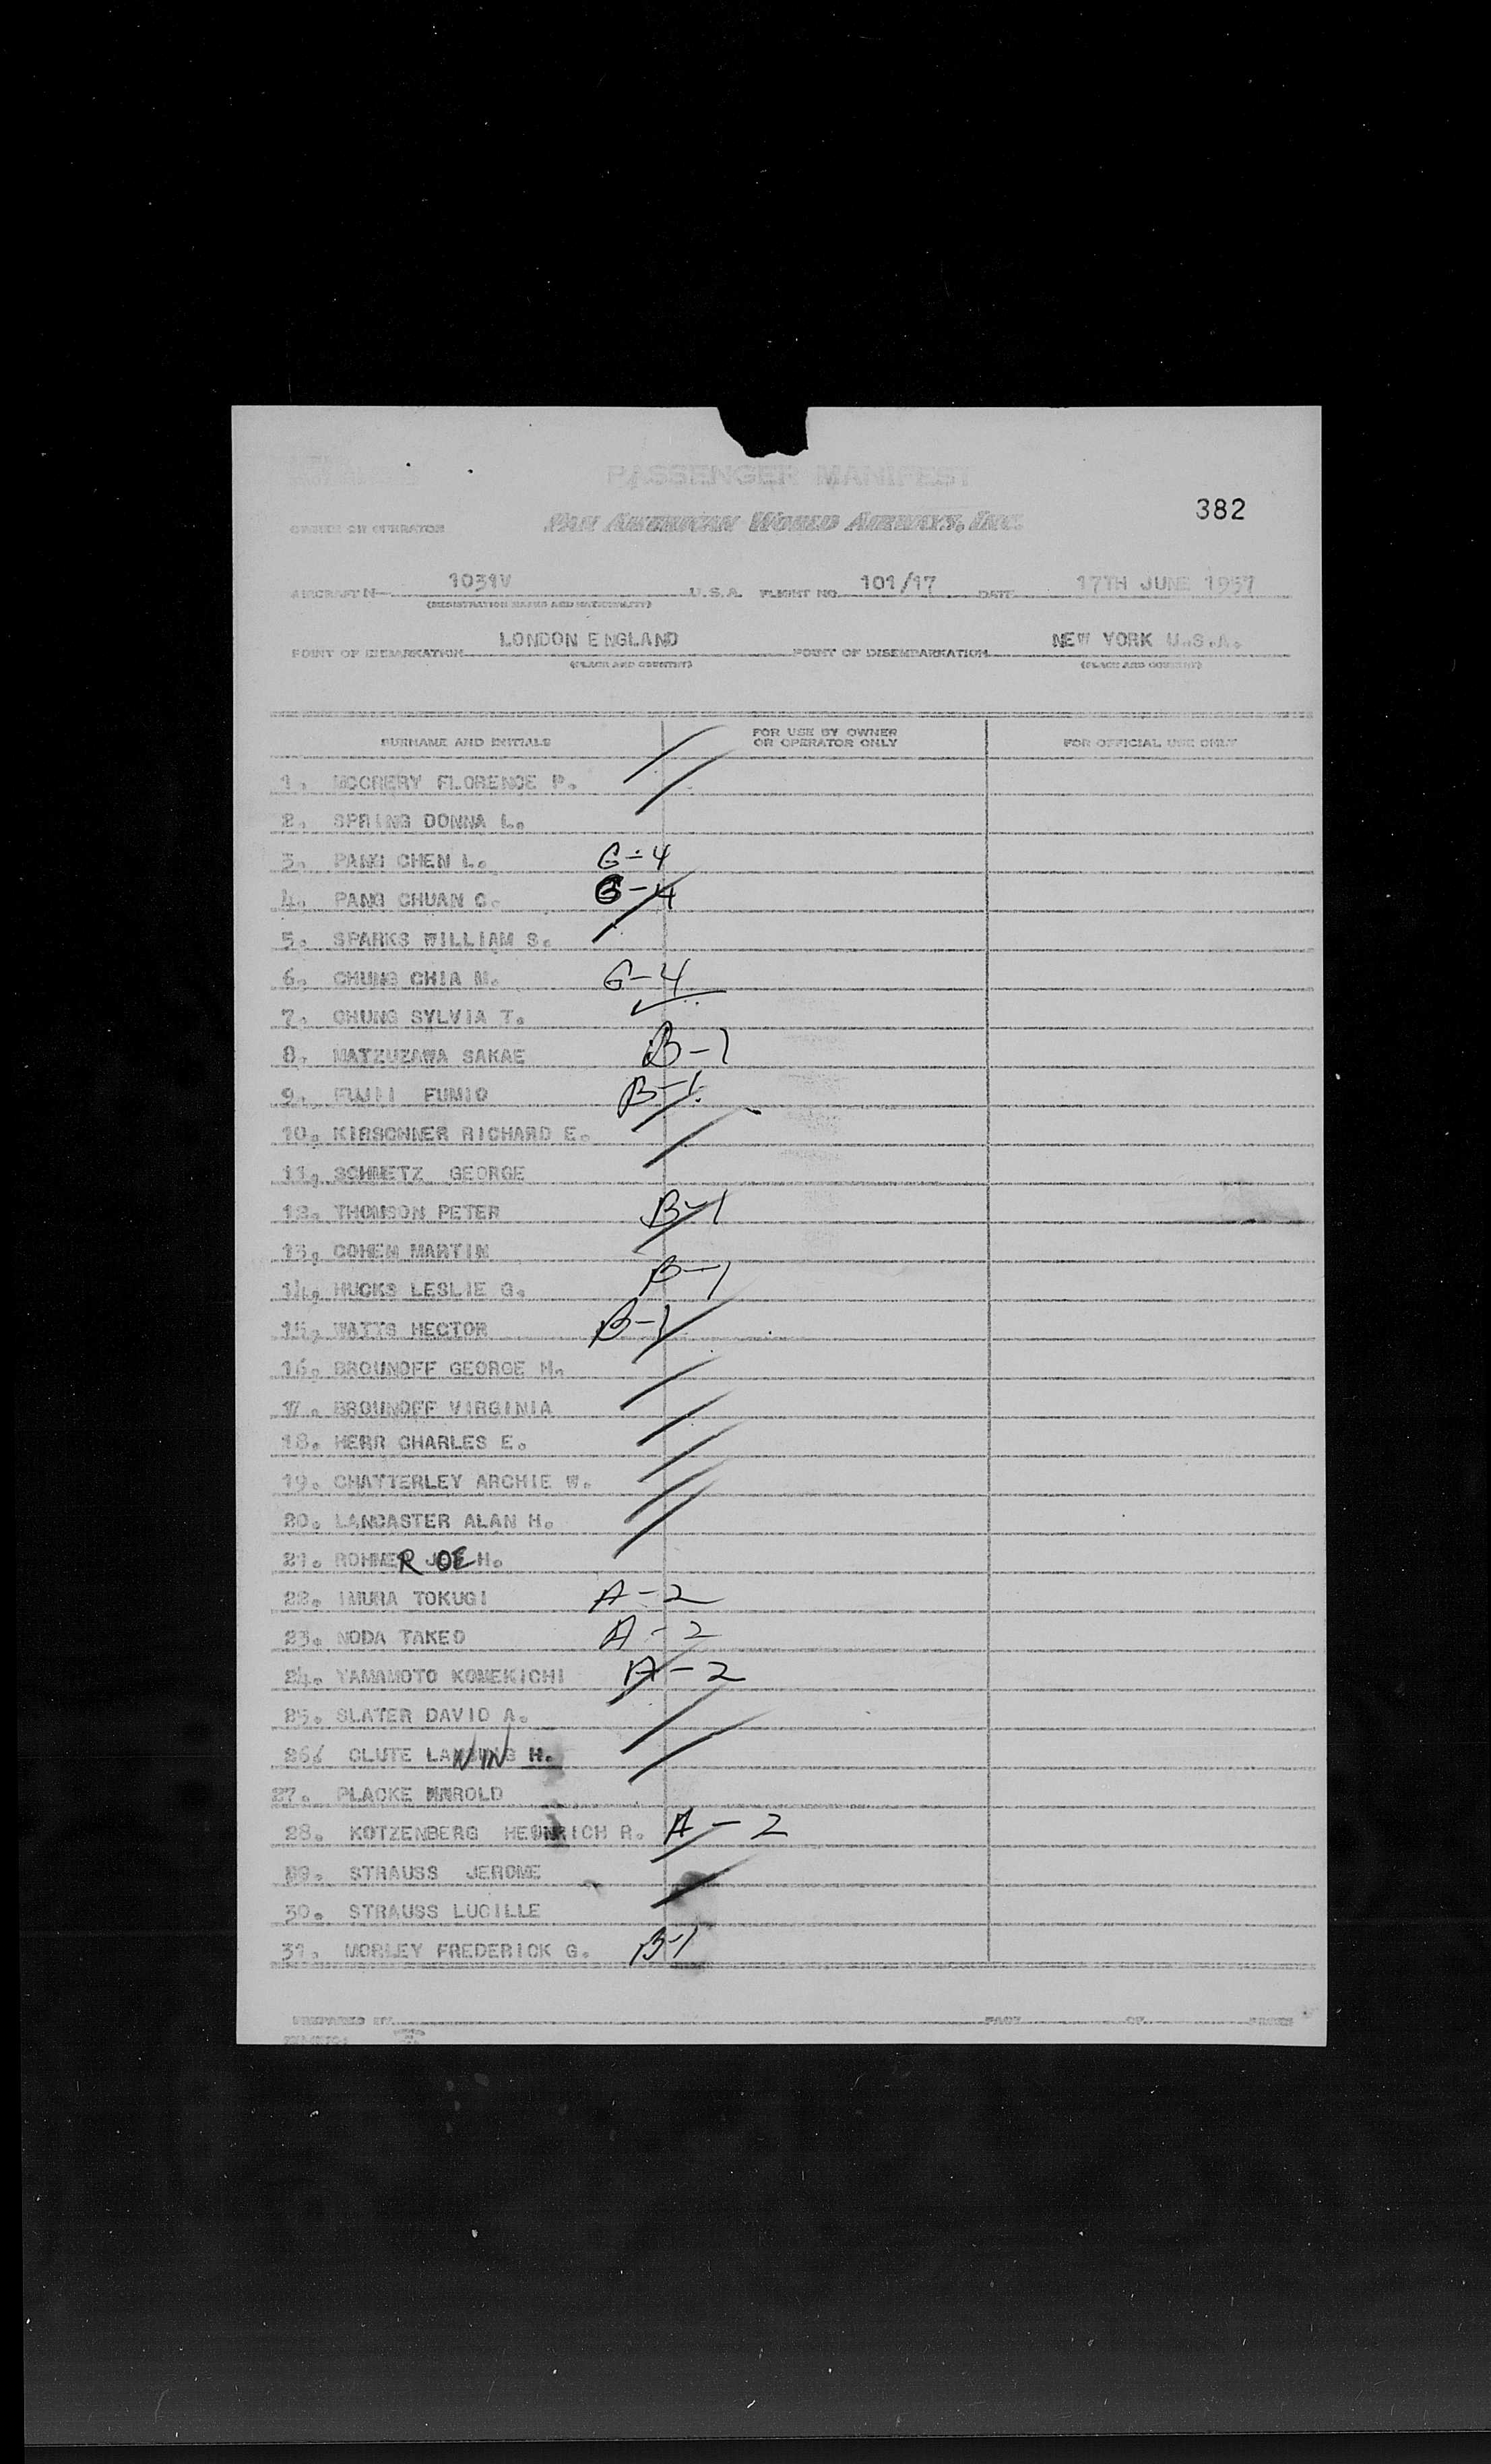 PASSENGER MANIFEST
382
OWNER OR OPERATOR PAN AMERICAN WORLD AIRWAYS, INC.
AIRCRAFT N- 1031V U.S.A. FLIGHT NO. 101/17 DATE 17TH JUNE 1957
(REGISTRATION MARKS AND NATIONALITY)
POINT OF EMBARKATION LONDON ENGLAND POINT OF DISEMBARKATION NEW YORK U.S.A.
(PLACE AND COUNTRY) (PLACE AND COUNTRY)
SURNAME AND INITIALS FOR USE BY OWNER OR OPERATOR ONLY FOR OFFICIAL USE ONLY
1. MCCRERY FLORENCE P.
2. SPRING DONNA L.
3. PANG CHEN L. G-4
4. PANG CHUAN C. G-4
5. SPARKS WILLIAM S.
6. CHUNG CHIA M. G-4
7. CHUNG SYLVIA T.
8. MATZUZAWA SAKAE B-1
9. FUJII FUMIO B-1
10. KIRSCHNER RICHARD E.
11. SCHMETZ GEORGE
12. THOMSON PETER B-1
13. COHEN MARTIN
14. HUCKS LESLIE G. B-1
15. WATTS HECTOR B-1
16. BROUNOFF GEORGE M.
17. BROUNOFF VIRGINIA
18. HERR CHARLES E.
19. CHATTERLEY ARCHIE W.
20. LANCASTER ALAN H.
21. ROHMER JOE H.
22. IMURA TOKUGI A-2
23. NODA TAKEO A-2
24. YAMAMOTO KOMEKICHI A-2
25. SLATER DAVID A.
26. CLUTE H.
27. PLACKE
28. KOTZENBERG HEINRICH R. A-2
29. STRAUSS JEROME
30. STRAUSS LUCILLE
31. MORLEY FREDERICK G. B-1
PREPARED BY PAGE OF PAGES